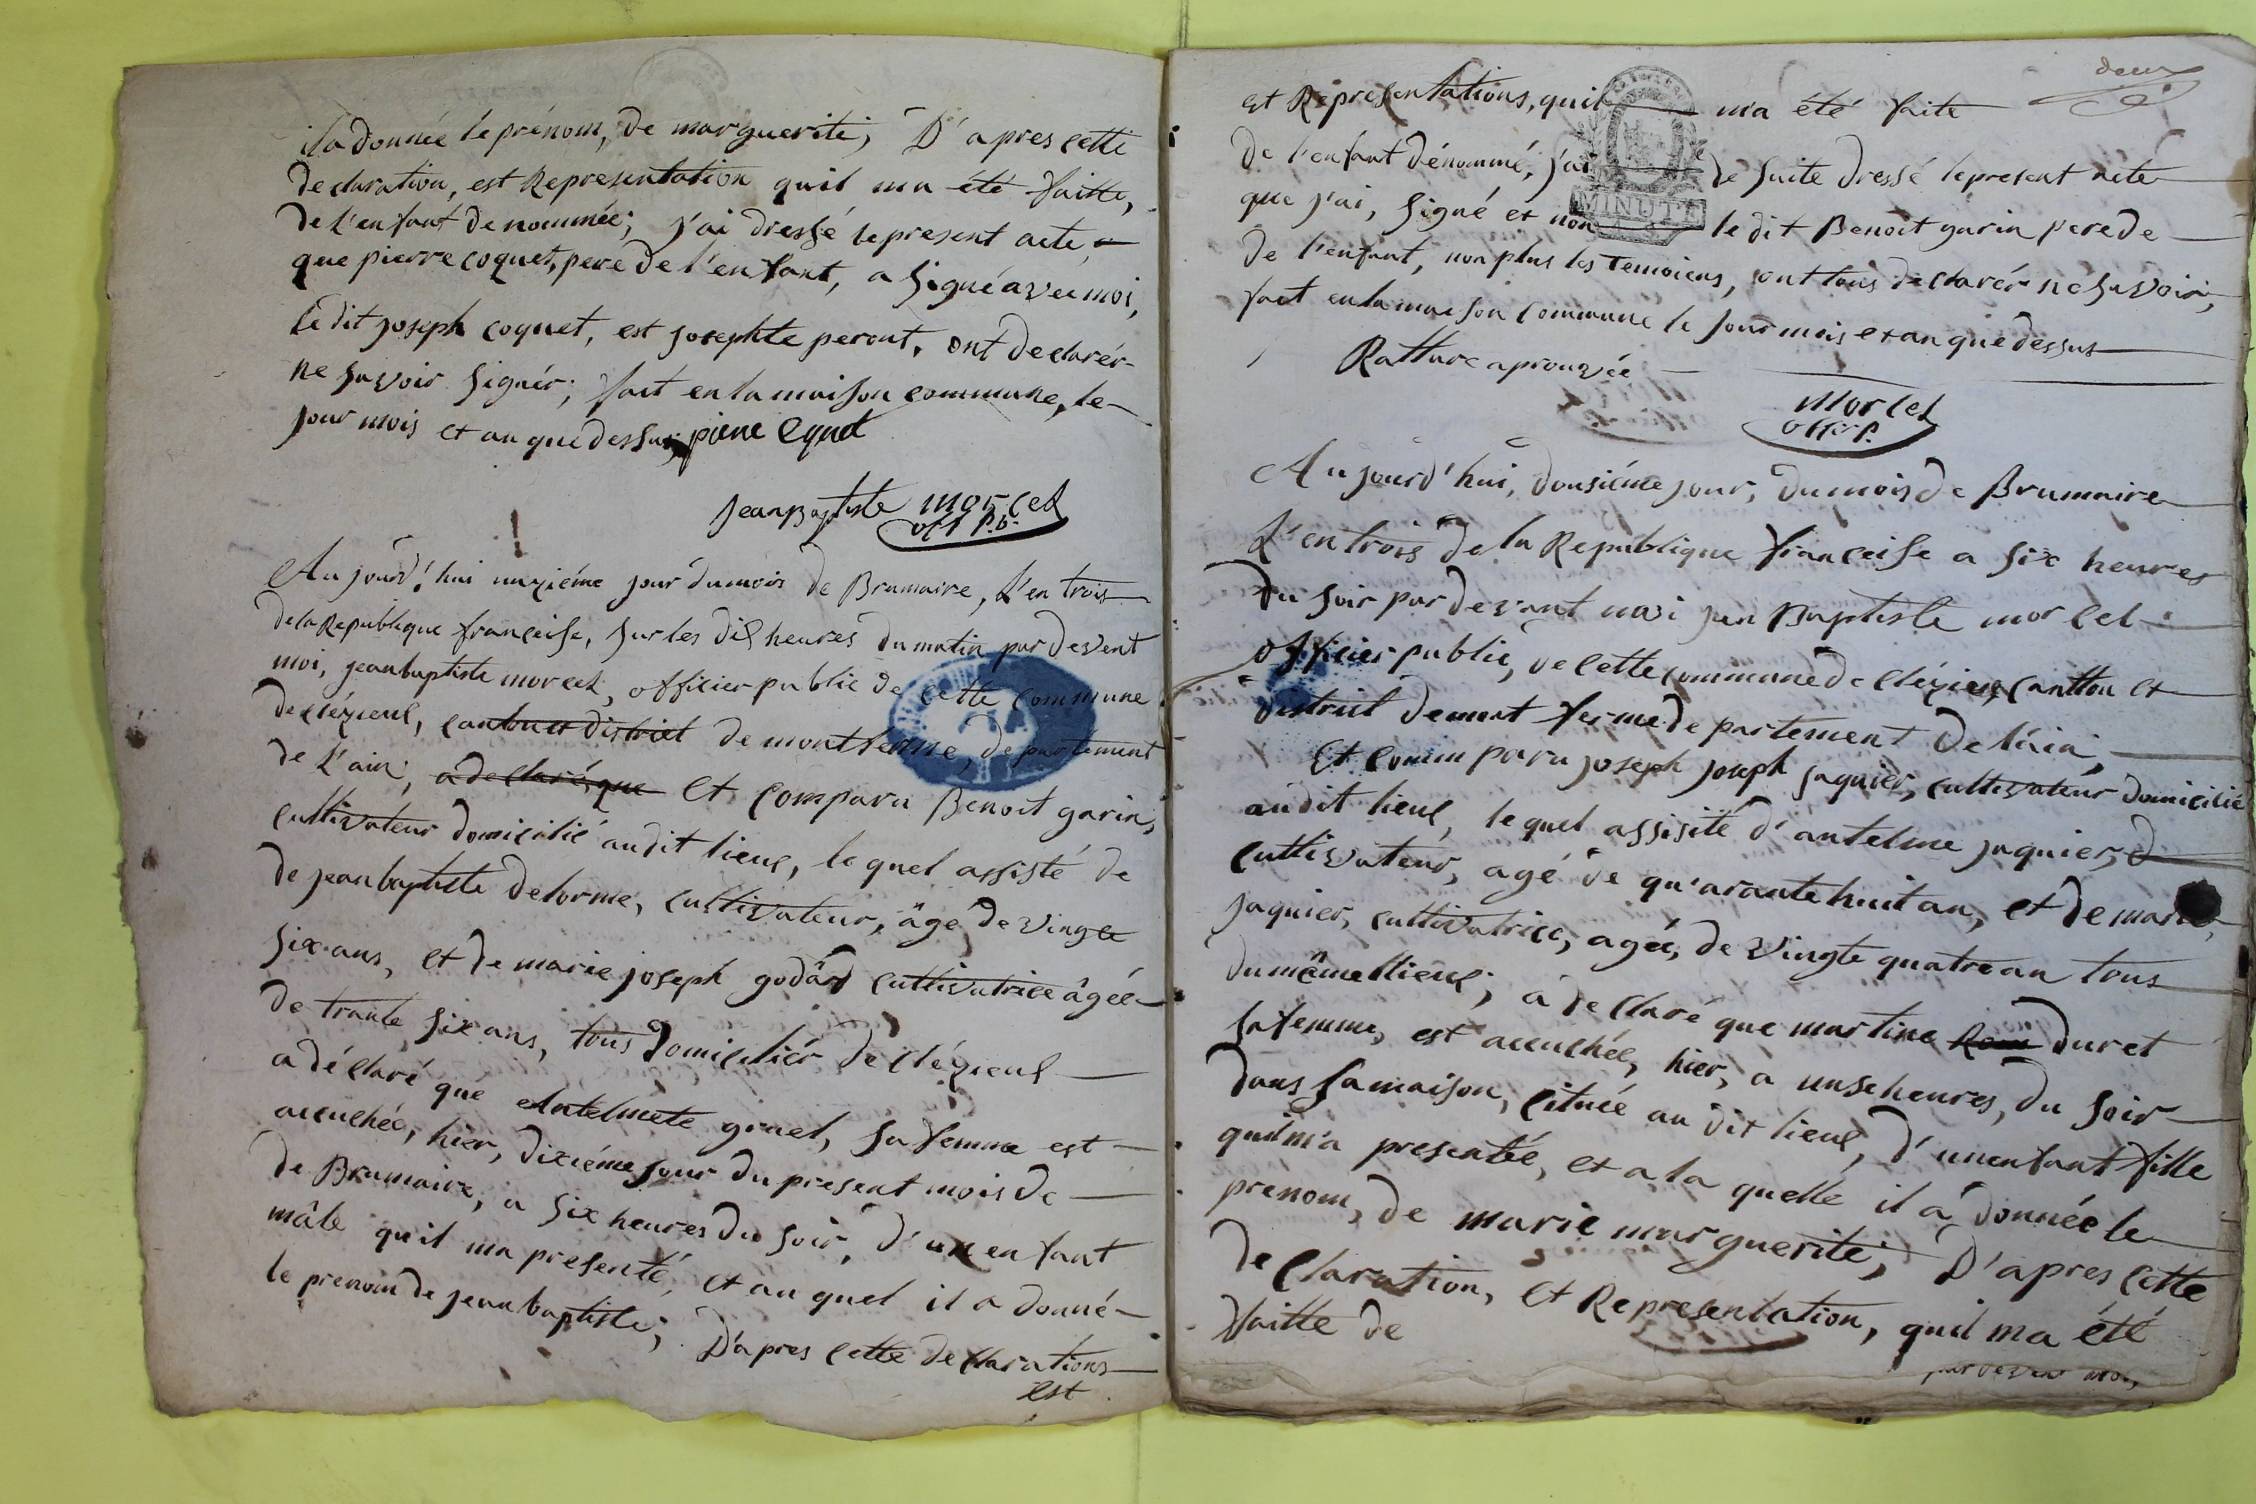 il a donnée le prénom, de marguerite; D'apres cette
declaration, est Representation quil ma été faitte,
de l'enfant denommée; j'ai dressé lepresent acte,
que pierre coquet, pere de l'enfant, a signé avec moi,
le dit joseph coquet, est josephte perout, ont declarér
ne savoir signér; fait en la maison commune, le
jour mois et an que dessus; piere Cquet
jean Baptiste morcel
off p.b.
Aujourd'hui unziéme jour du mois de Brumaire, L'en trois
de la Republique françeise, sur les dix heures du matin par devent
moi, jean baptiste morcel, officier public de cette commune
de clézieux, canton et district de montferme, departement
de L'ain, a declaré que et compara Benoit garin,
cultivateur domicilié audit lieux, le quel assisté de
de jean baptiste delorme, cultivateur, âgé de vingte
six ans, et de marie joseph godârd cultivatrice âgée
de trante six ans, tous domiciliér de clézieux
a déclaré que antelmete gruel, sa femme est
acuchée, hier, dixiéme jour du present mois de
de Brumaire, a six heures du soir, d'un enfant
mâle quil ma presenté, et au quel il a donné
le prenom de jean baptiste; D'apres cette declarations
est
deux
et Représentations, quil m'a été faite
de l'enfant dénommé, j'ai de suite dressé lepresent acte
MINUTE
que j'ai, signé et non le dit Benoit garin pere de
de l'enfant, non plus les temoiens, ont tous declarér ne savoir,
fait en la maison commune le jour mois et an que dessus
Ratture aprouvée
morcel
off. p.
Aujourd'hui, dousiéme jour, du mois de Brumaire
L'en trois de la Republique françeise a six heures
du soir par devant moi jean Baptiste morcel
officier public, de cette commune de clézieux, cantton et
district demont ferme departement de l'ain,
Et commpara joseph joseph jaquier, cultivateur domicilié
audit lieux, le quel assisité d'antelme jaquier, d
cultivateur, agé de quarante huit an, et de marie,
jaquier, cultivatrice, agée, de vingte quatre an tous
du même lieux; a declaré que martine duret
sa femme, est acuchée, hier, a unse heures, du soir
dans sa maison, cituée au dit lieux, d'un enfant fille
quil m'a presentée, et a la quelle il a donnée le
prenom, de marie marguerite; D'apres cette
declaration, et Representation, quil ma été
faitte de
par devent moi,